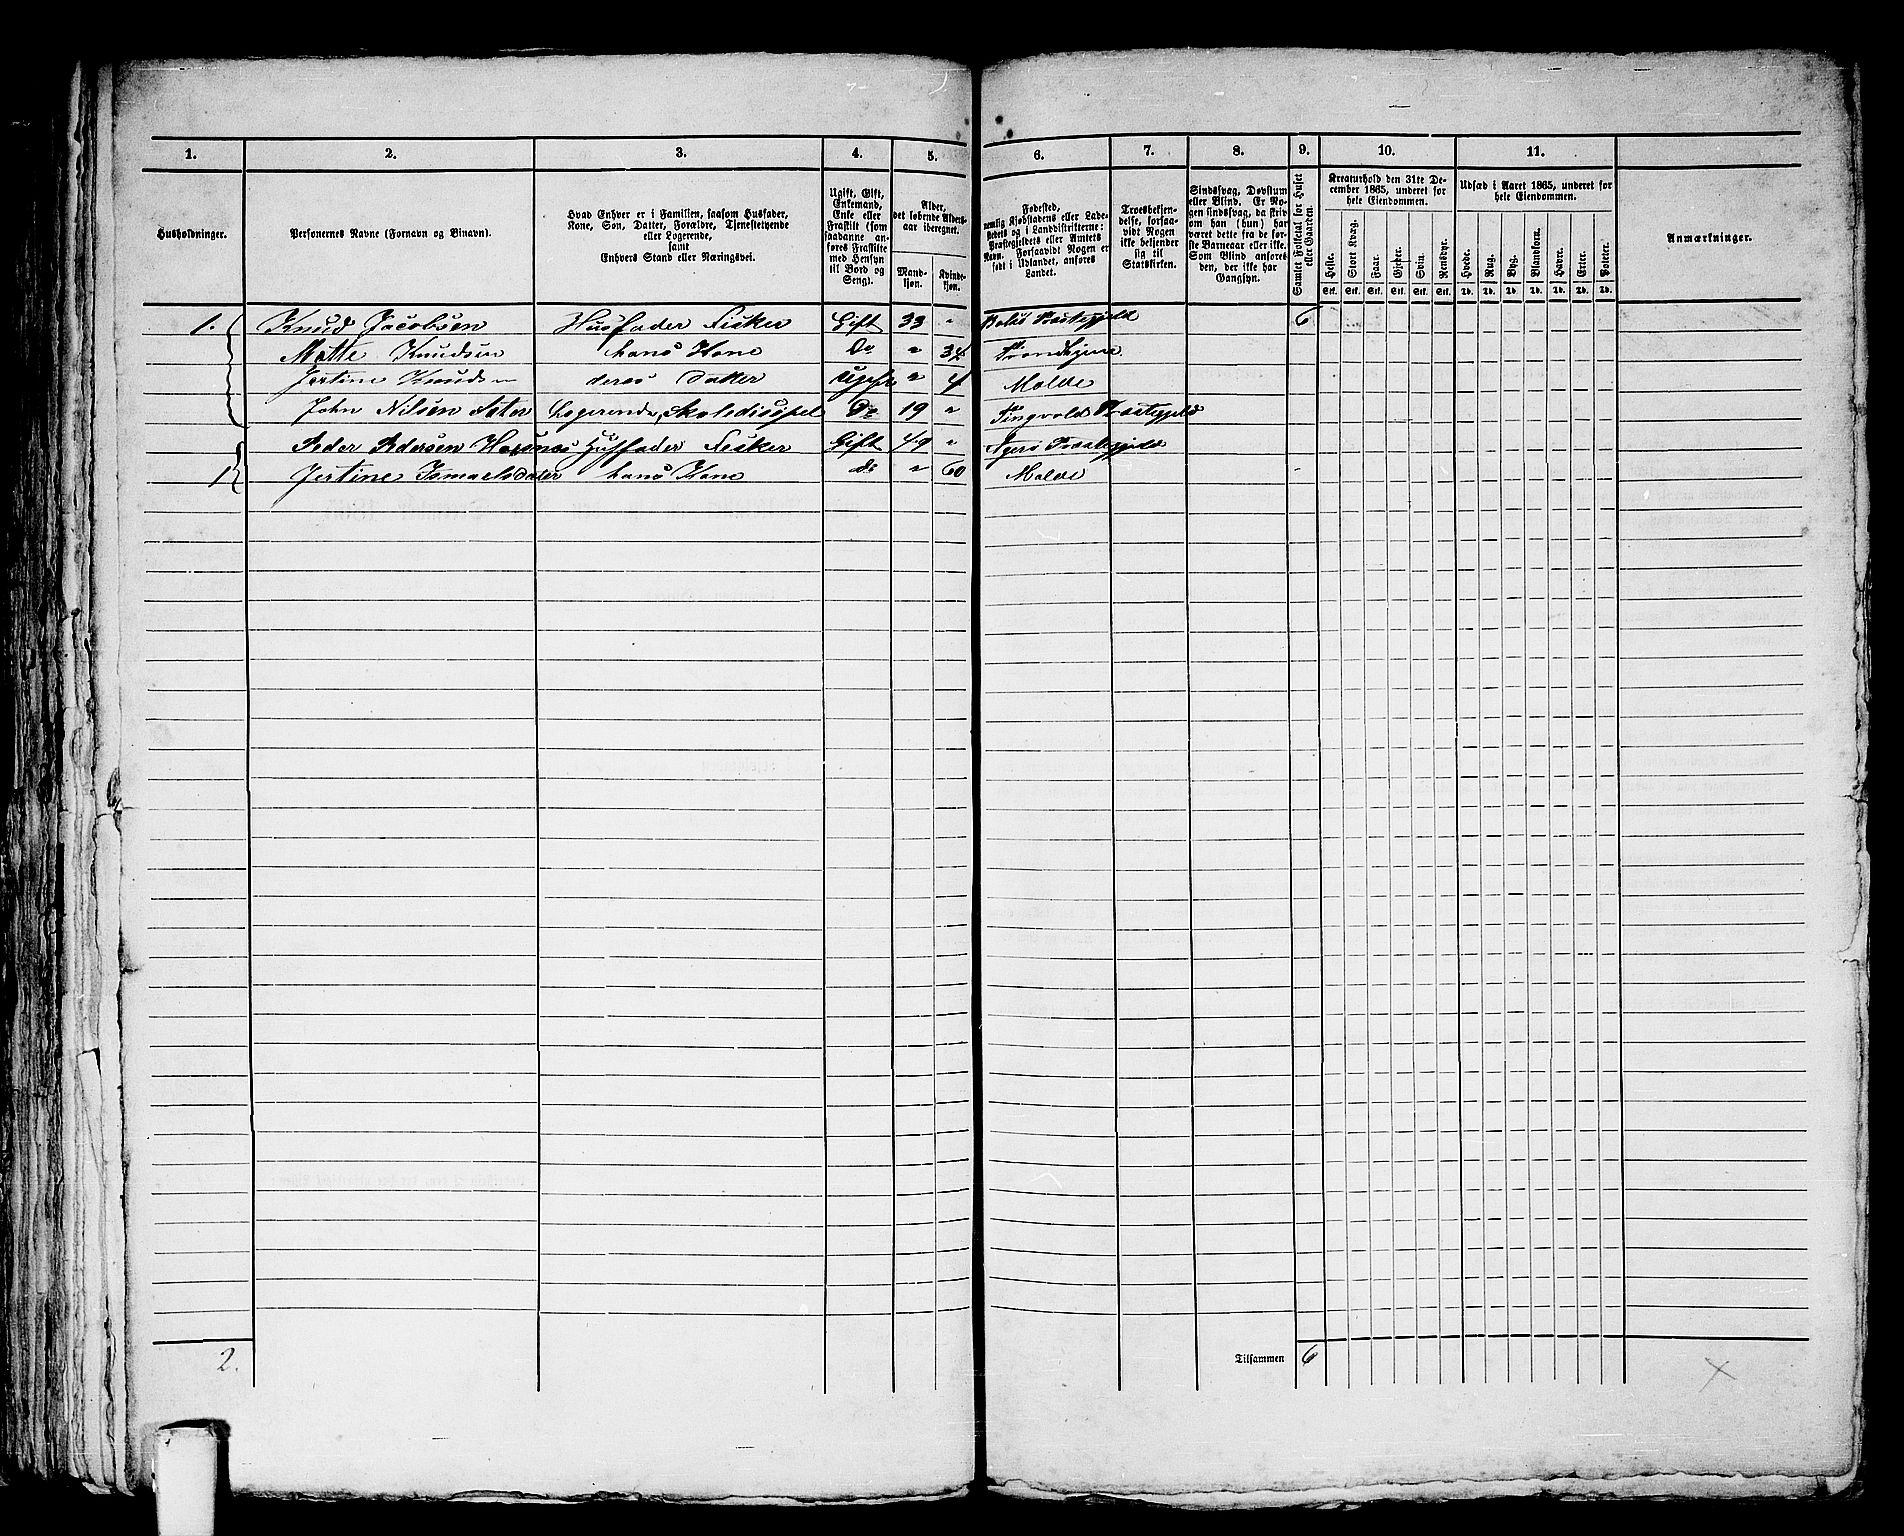 1. 2. 3. 4. 5. 6. 7. 8. 9. 10. 11.
Husholdninger.
Personernes Navne (Fornavn og Binavn).
Hvad Enhver er i Familien, saasom Husfader,
Kone, Søn, Datter, Forældre, Tjenestetyende
eller Logerende,
samt
Enhvers Stand eller Næringsvei.
Ugift, Gift,
Enkemand,
Enke eller
Fraskilt (som
saadanne an-
føres Fraskilte
med Hensyn
til Bord og
Seng).
Alder,
det løbende Alders-
aar iberegnet.
Mand-
kjøn.
Kvinde-
kjøn.
Fødested,
nemlig Kjøbstadens eller Lade-
stedets og i Landdistrikterne:
Præstegjeldets eller Amtets
Navn. Forsaavidt Nogen er
født i Udlandet, anføres
Landet.
Troesbekjen-
delse, forsaa-
vidt Nogen
ikke bekjender
sig til
Statskirken.
Sindssvag, Døvstum
eller Blind. Er No-
gen sindssvag, da skriv
om han (hun) har
været dette fra de før-
ste Barneaar eller ikke.
Som Blind anføres
den, der ikke har
Gangsyn.
Samlet Folketal for Huset
eller Gaarden.
Kreaturhold den 31te De-
cember 1865, underet for
hele Eiendommen.
Heste. Stort Kvæg. Faar. Gjeder. Svin. Rensdyr.
Stk. Stk. Stk. Stk. Stk. Stk.
Udsæd i Aaret 1865, underet for
hele Eiendommen.
Hvede. Rug. Byg. Blandkorn. Havre. Erter. Poteter.
Td. Td. Td. Td. Td. Td. Td.
Anmærkninger.
1. Knud Jacobsen Husfader Fisker Gift 33 " Bolsø Præstegjeld 6
Mætte Knudsen hans Kone Do " 34 Trondhjem
Jertine Knudsen deres Dater Ugift " 4 Molde
John Nilsen Sæter Logerende, Skoledisipel Do 19 " Tingvold Præstegjeld
Peder Pedersen Husfader Fisker Gift 49 " Agerø Præstegjeld
1 Jertine Ismaelsdater hans Kone do " 60 Molde
2. Tilsammen 6 X